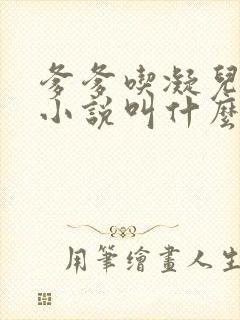 爹爹喫凝兒
小說叫什麼
用筆繪畫人生